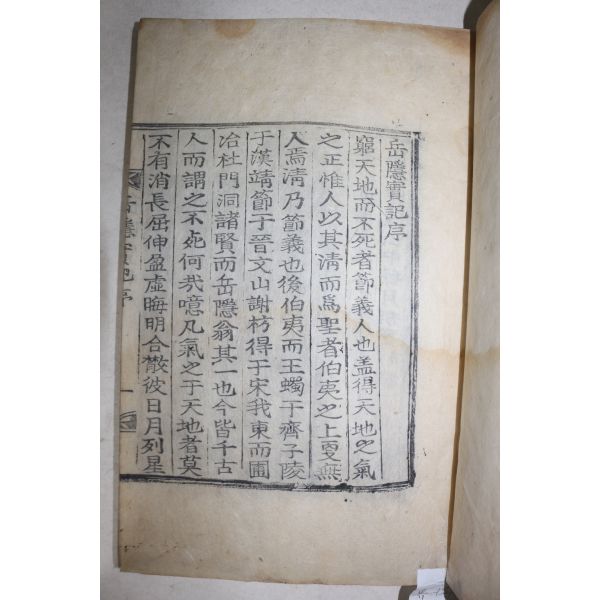 岳隱實記序
窮天地而不死者節義人也盖得天地之氣
之正惟人以其淸而爲聖者伯夷之上更無
人焉淸乃節義也後伯夷而王蠋于齊子陵
于漢靖節于晉文山謝枋得于宋我東而圃
冶杜門洞諸賢而岳隱翁其一也今皆千古
人而謂之不死何㢤噫凡氣之于天地者莫
不有消長屈伸盈虛晦明合散彼日月列星
岳隱實記序 一